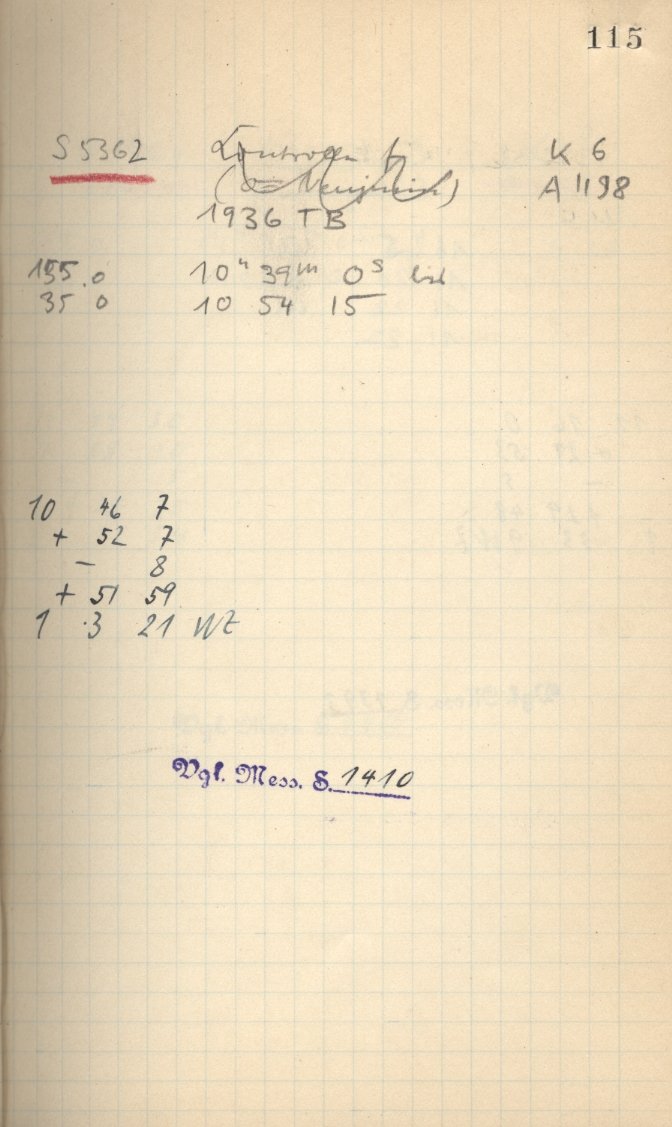 115
S 5362 Kontrollen f K 6
A 1198
1936 TB
155.0 10h 39m 0s
35 0 10 54 15
10 46 7
+ 52 7
- 8
+ 51 59
1 3 21 WZ
Vgl. Mess. S. 1410